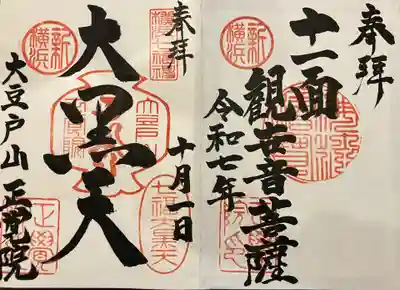 奉拝
十一面
観世音菩薩
令和七年
新
横浜
奉拝
十月一日
大黒天
大豆戸山
正覚院
新
横浜
正覺